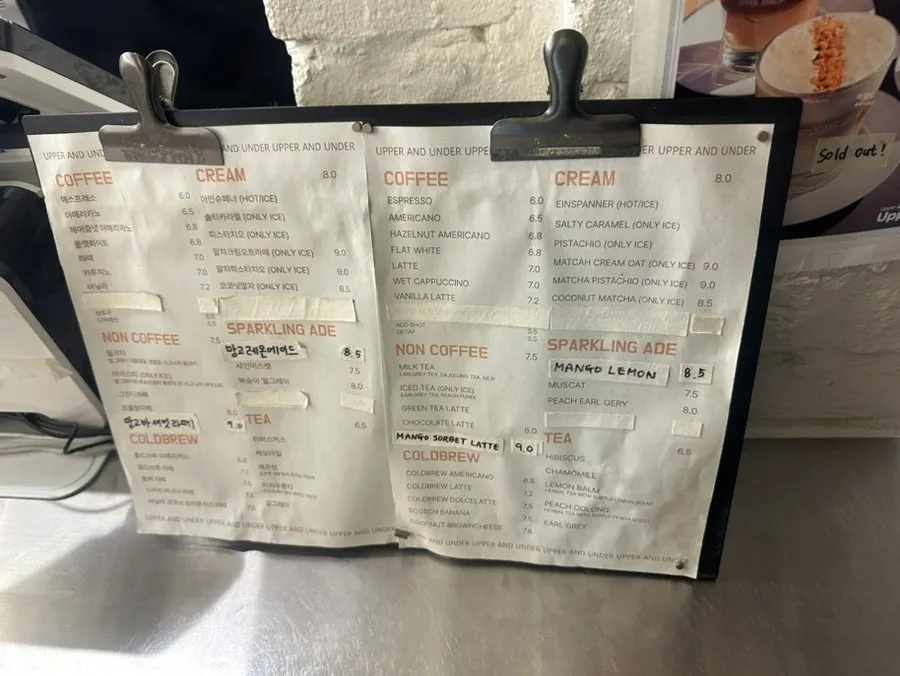 UPPER AND UND
AND UNDER UPPER AND UNDER
COFFEE
에스프레소 6.0
아메리카노 6.5
헤이즐넛 아메리카노 6.8
플랫화이트 6.8
라떼 7.0
카푸치노 7.0
바닐라 7.2
0.5
0.5
NON COFFEE 7.5
밀크티
아이스티 (ONLY ICE)
그린티라떼
초콜릿라떼 8.0
9.0
COLDBREW
콜드브루 아메리카노 6.8
콜드브루 라떼 7.2
7.5
7.5
7.8
CREAM 8.0
아인슈페너 (HOT/ICE)
솔티카라멜 (ONLY ICE)
피스타치오 (ONLY ICE)
말차크림오트라떼 (ONLY ICE) 9.0
말차피스타치오 (ONLY ICE) 9.0
코코넛말차 (ONLY ICE) 8.5
SPARKLING ADE
망고레몬에이드 8.5
샤인머스켓 7.5
복숭아 얼그레이 8.0
TEA 6.5
히비스커스
캐모마일
레몬밤
피치우롱티
얼그레이
UPPER AND UNDER UPPER AND UNDER UPPER AND UNDER
UPPER AND UNDER UPP
ER UPPER AND UNDER
COFFEE
ESPRESSO 6.0
AMERICANO 6.5
HAZELNUT AMERICANO 6.8
FLAT WHITE 6.8
LATTE 7.0
WET CAPPUCCINO 7.0
VANILLA LATTE 7.2
ADD SHOT 0.5
DECAF 0.5
NON COFFEE 7.5
MILK TEA
EARLGREY TEA, DAJEELING TEA, MILK
ICED TEA (ONLY ICE)
EARLGREY TEA, PEACH PUREE
GREEN TEA LATTE
CHOCOLATE LATTE 8.0
MANGO SORBET LATTE 9.0
COLDBREW
COLDBREW AMERICANO 6.8
COLDBREW LATTE 7.2
COLDBREW DOLCELATTE 7.5
SCOTCH BANANA 7.5
COCONUT BROWNCHEESE 7.8
CREAM 8.0
EINSPANNER (HOT/ICE)
SALTY CARAMEL (ONLY ICE)
PISTACHIO (ONLY ICE)
MATCAH CREAM OAT (ONLY ICE) 9.0
MATCHA PISTACHIO (ONLY ICE) 9.0
COCONUT MATCHA (ONLY ICE) 8.5
SPARKLING ADE
MANGO LEMON 8.5
MUSCAT 7.5
PEACH EARL GERY 8.0
TEA 6.5
HIBISCUS
CHAMOMILE
LEMON BALM
HERBAL TEA WITH SUBTLE LEMON SCENT
PEACH OOLONG
HERBAL TEA WITH SUBTLE PEACH SCENT
EARL GREY
UPPER AND UNDER UPPER AND UNDER UPPER AND UNDER
Sold out!